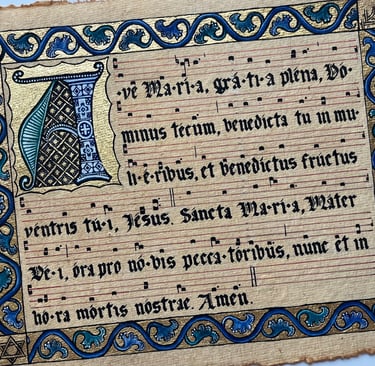 A·ve Ma·ri·a, grá·ti·a pléna, Dó-
minus tecum, benedícta tu in mu-
li·é·ribus, et benedíctus fructus
véntris tú·i, Jésus. Sáncta Ma·rí·a, Máter
Dé·i, óra pro nó·vis pecca·tóribus, nunc ét in
hó·ra mórtis nóstrae. Amen.